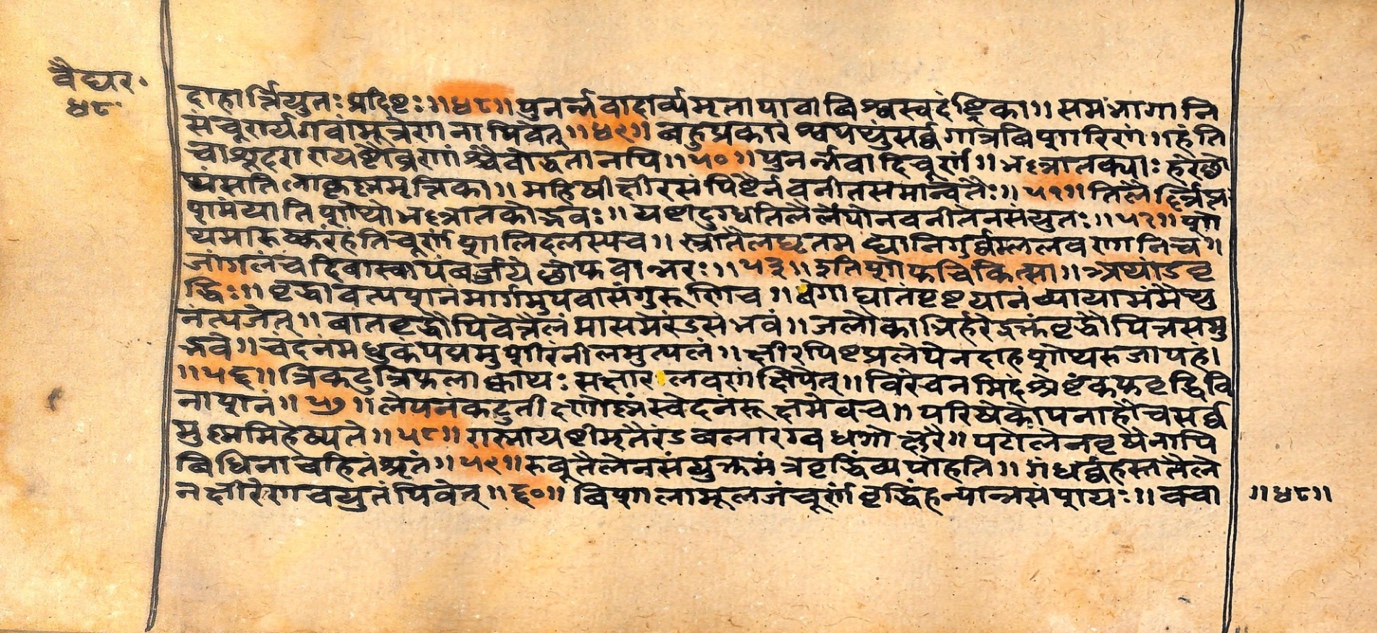 वैद्यर॰
४८
दाहार्त्तियुतः प्रदिष्टः॥४८॥ पुनर्न्नवादार्व्यमृतापाठाविश्वस्वदंष्ट्रिका॥ समंभागानि
संचूर्ण्यगवांमूत्रेणनापिबेत्॥४९॥ बहुप्रकारंश्वपथुंसर्वगात्रविशारिणं॥ हंति
चाश्रूदराण्यष्टौव्रणांश्चैवोद्धतानपि॥५०॥ पुनर्न्नवादिचूर्णं॥ भल्लातक्याः हरेच्छो
थंसतिलाकृष्णमृत्तिका॥ महिषीक्षीरसंपिष्टैर्नवनीतसमान्वितैः॥५१॥ तिलैर्लि
शमंयातिशोथोभल्लातकोद्भवः॥ यष्टीदुग्धतिलैर्लेपोनवनीतेनसंयुतः॥५२॥ शो
थमारुष्करंहंतिचूर्णंशालिदलस्यच॥ स्नातैलघृतमद्यानिगुर्वम्ललवणनिच॥
जांगलंचदिवास्वापंवर्ज्जयेच्छोफवान्नरः॥५३॥ इतिशोफचिकित्सा॥ अथांडवृ
द्धिः॥ वृद्धावत्यशनंमार्गमुपवासंगुरूणिच॥ वेगाघातंपृष्टयानंव्यायामंमैथु
नंत्यजेत्॥ वातवृद्धौपिबेत्तैलंमासमेरंडसंभवं॥ जलौकाभिर्हरेद्रक्तंवृद्धौपित्तसमु
द्भवे॥ चंदनंमधुकंपद्ममुशीरंनीलमुत्पलं॥ क्षीरपिष्टप्रलेपेनदाहशोथरुजापहं।
॥५६॥ त्रिकटुत्रिफलाक्वाथः सक्षारलवणंक्षिपेत्॥ विरेचनमिदंश्रेष्टंकफवृद्धिवि
नाशनं॥५७॥ लेपनंकटुतीक्ष्णोष्णंस्वेदनंरूक्षमेवच॥ परिषेकोपनाहौचसर्व
मुष्णमिहेष्यते॥५८॥ रास्नायष्टीमृतैरंडबलारग्वधगोक्षुरैः॥ पटोलेनवृषेनापि
विधिनाचहितंश्रृतं॥५९॥ रुबूतैलेनसंयुक्तमंत्रवृद्धिंव्यपोहति॥ गंधर्वहस्ततैले
नक्षीरेणचयुतंपिबेत्॥६०॥ विशालामूलजंचूर्णंवृद्धिंहन्यान्नसंशयः॥ वचा
॥४८॥